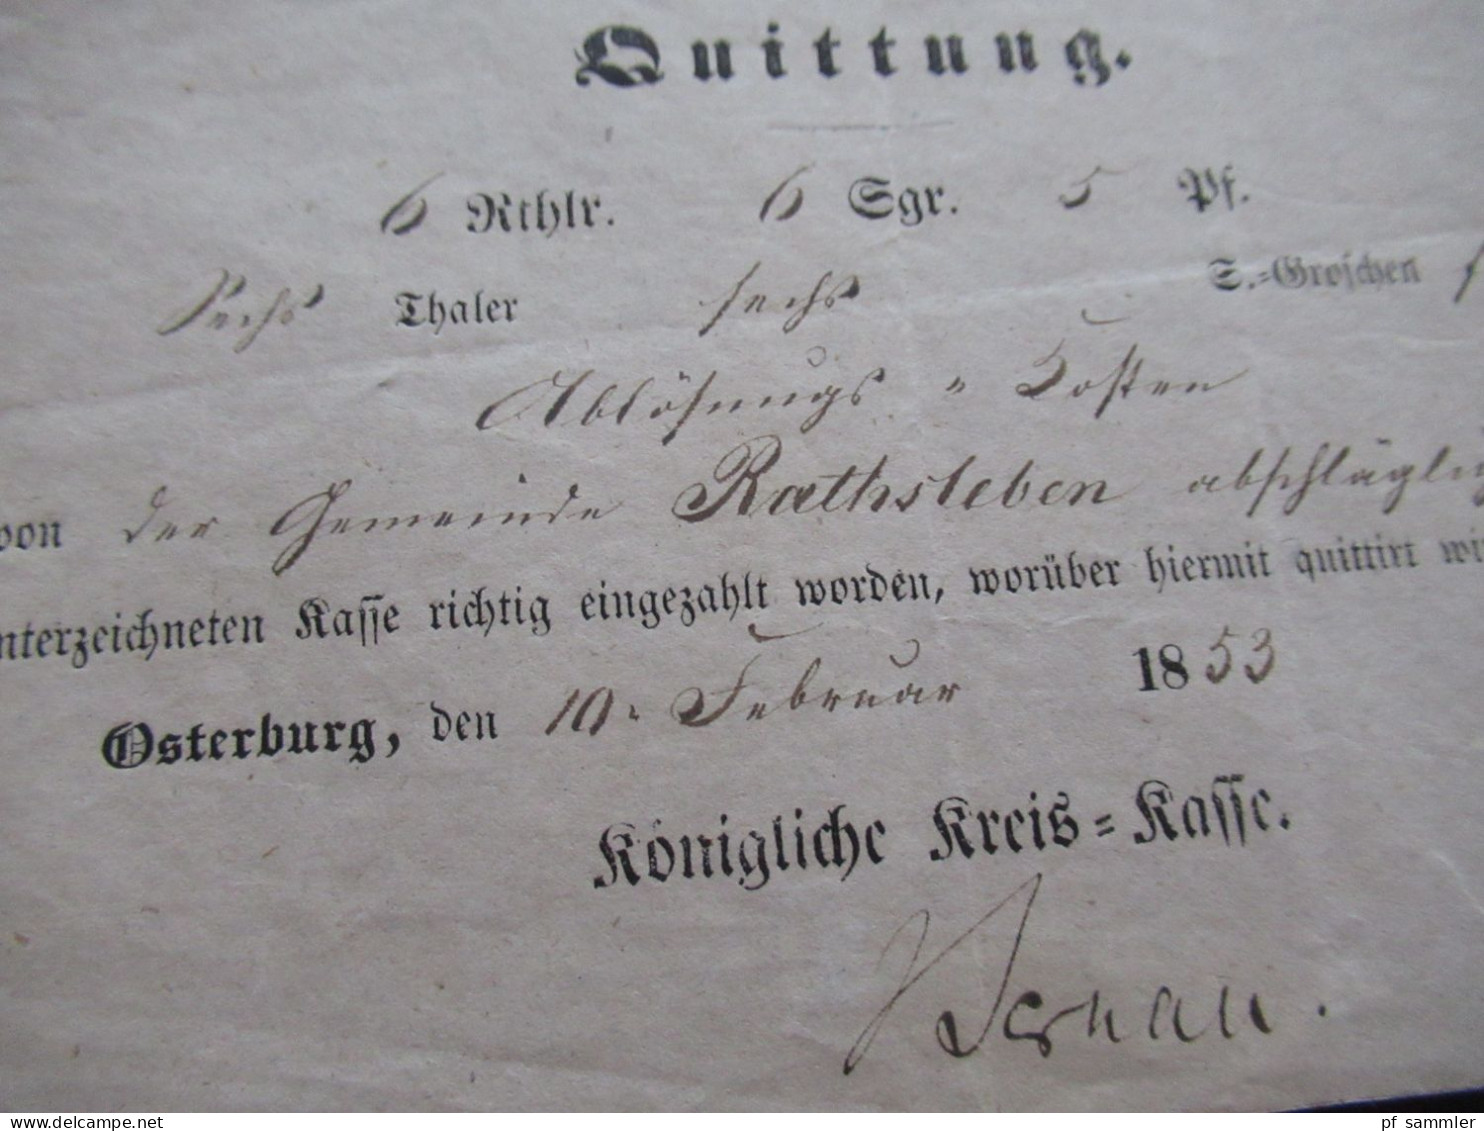 Quittung.
6 Rthlr. 6 Sgr. 5 Pf.
Sechs Thaler sechs S.=Groschen f
Ablösungs = Kosten
von der Gemeinde Rathsleben abschläglic
nterzeichneten Kasse richtig eingezahlt worden, worüber hiermit quittirt wi
Osterburg, den 10. Februar 1853
Königliche Kreis=Kasse.
www.delcampe.net
pf_sammler